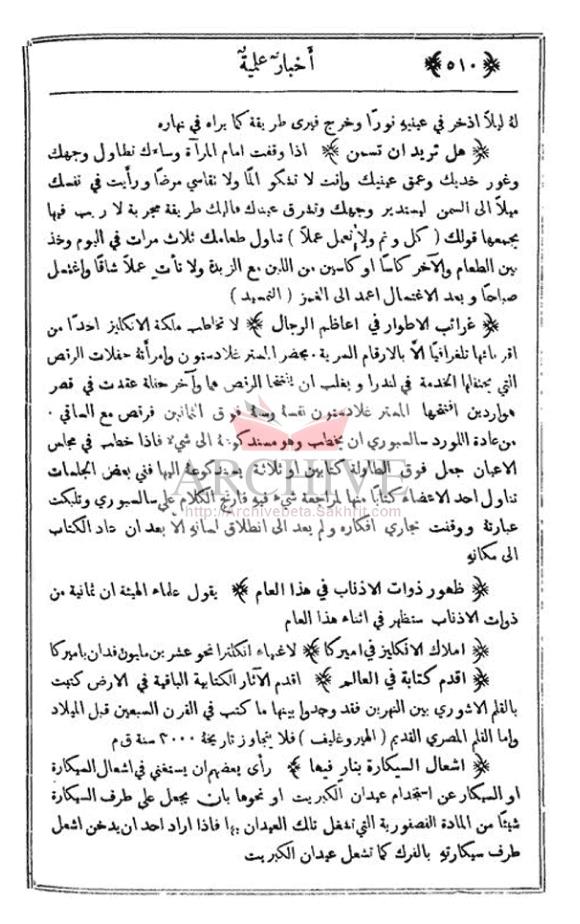 ﴿٥١٠﴾ أخبار علمية
لهُ ليلاً اذخر في عينيهِ نورًا وخرج فيرى طريقة كما يراه في نهاره
﴿ هل تريد ان تسمن ﴾ اذا وقفت امام المرآة وساءك تطاول وجهك
وغور خديك وعمق عينيك وانت لا تشكو المًا ولا تقاسي مرضًا ورأيت في نفسك
ميلاً الى السمن ليستدير وجهك وتشرق عينك فاليك طريقة مجربة لا ريب فيها
يجمعها قولك ( كل ونم ولا تعمل عملاً ) تناول طعامك ثلاث مرات في اليوم وخذ
بين الطعام والآخر كاسًا او كاسين من اللبن مع الزبدة ولا تأتِ عملاً شاقًا واغتسل
صباحًا وبعد الاغتسال اعمد الى الغمز ( التمسيد )
﴿ غرائب الاطوار في اعاظم الرجال ﴾ لا تخاطب ملكة الانكليز احدًا من
اقربائها تلغرافيًا الاَّ بالارقام السرية . يحضر المستر غلادستون وامرأتهُ حفلات الرقص
التي يحتفلها الخدمة في لندرا ويغلب ان يفتتحا الرقص هما وآخر حفلة عقدت في قصر
هواردين افتتحها المستر غلادستون نفسهُ وسنهُ فوق الثمانين فرقص مع الساقي .
من عادة اللورد سالسبوري ان يخطب وهو مسند كوعهُ الى شيءٍ فاذا خطب في مجلس
الاعيان جعل فوق الطاولة كتابين او ثلاثة يسند كوعهُ اليها ففي بعض الجلسات
تناول احد الاعضاء كتابًا منها لمراجعة شيءٍ فيهِ فارتج الكلام على سالسبوري وتلبكت
عبارتهُ ووقفت مجاري افكاره ولم يعد الى انطلاق لسانهِ الاَّ بعد ان عاد الكتاب
الى مكانهِ
﴿ ظهور ذوات الاذناب في هذا العام ﴾ يقول علماء الهيئة ان ثمانية من
ذوات الاذناب ستظهر في اثناء هذا العام
﴿ املاك الانكليز في اميركا ﴾ لاغنياء انكلترا نحو عشرين مليون فدان باميركا
﴿ اقدم كتابة في العالم ﴾ اقدم الآثار الكتابية الباقية في الارض كتبت
بالقلم الاشوري بين النهرين فقد وجدوا بينها ما كتب في القرن السبعين قبل الميلاد
واما القلم المصري القديم ( الهيروغليف ) فلا يتجاوز تاريخهُ ٢٠٠٠ سنة ق م
﴿ اشعال السيكارة بنار فيها ﴾ رأى بعضهم ان يستغني في اشعال السيكارة
او السيكار عن استخدام عيدان الكبريت او نحوها بان يجعل على طرف السيكارة
شيئًا من المادة الفصفورية التي تشعل تلك العيدان بها فاذا اراد احد ان يدخن اشعل
طرف سيكارتهِ بالفرك كما تشعل عيدان الكبريت
ARCHIVE
http://Archivebeta.Sakhrit.com